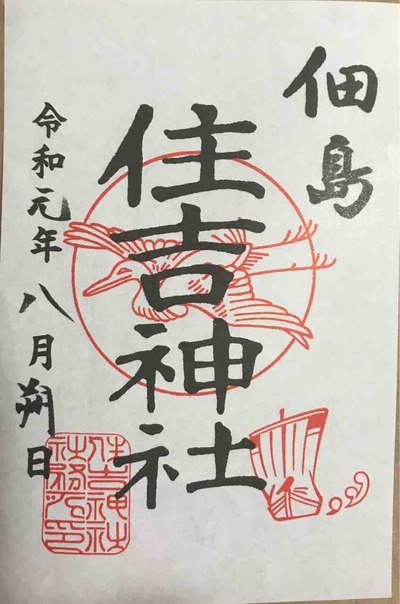 佃島
住吉神社
令和元年八月朔日
住吉神社
社務所印